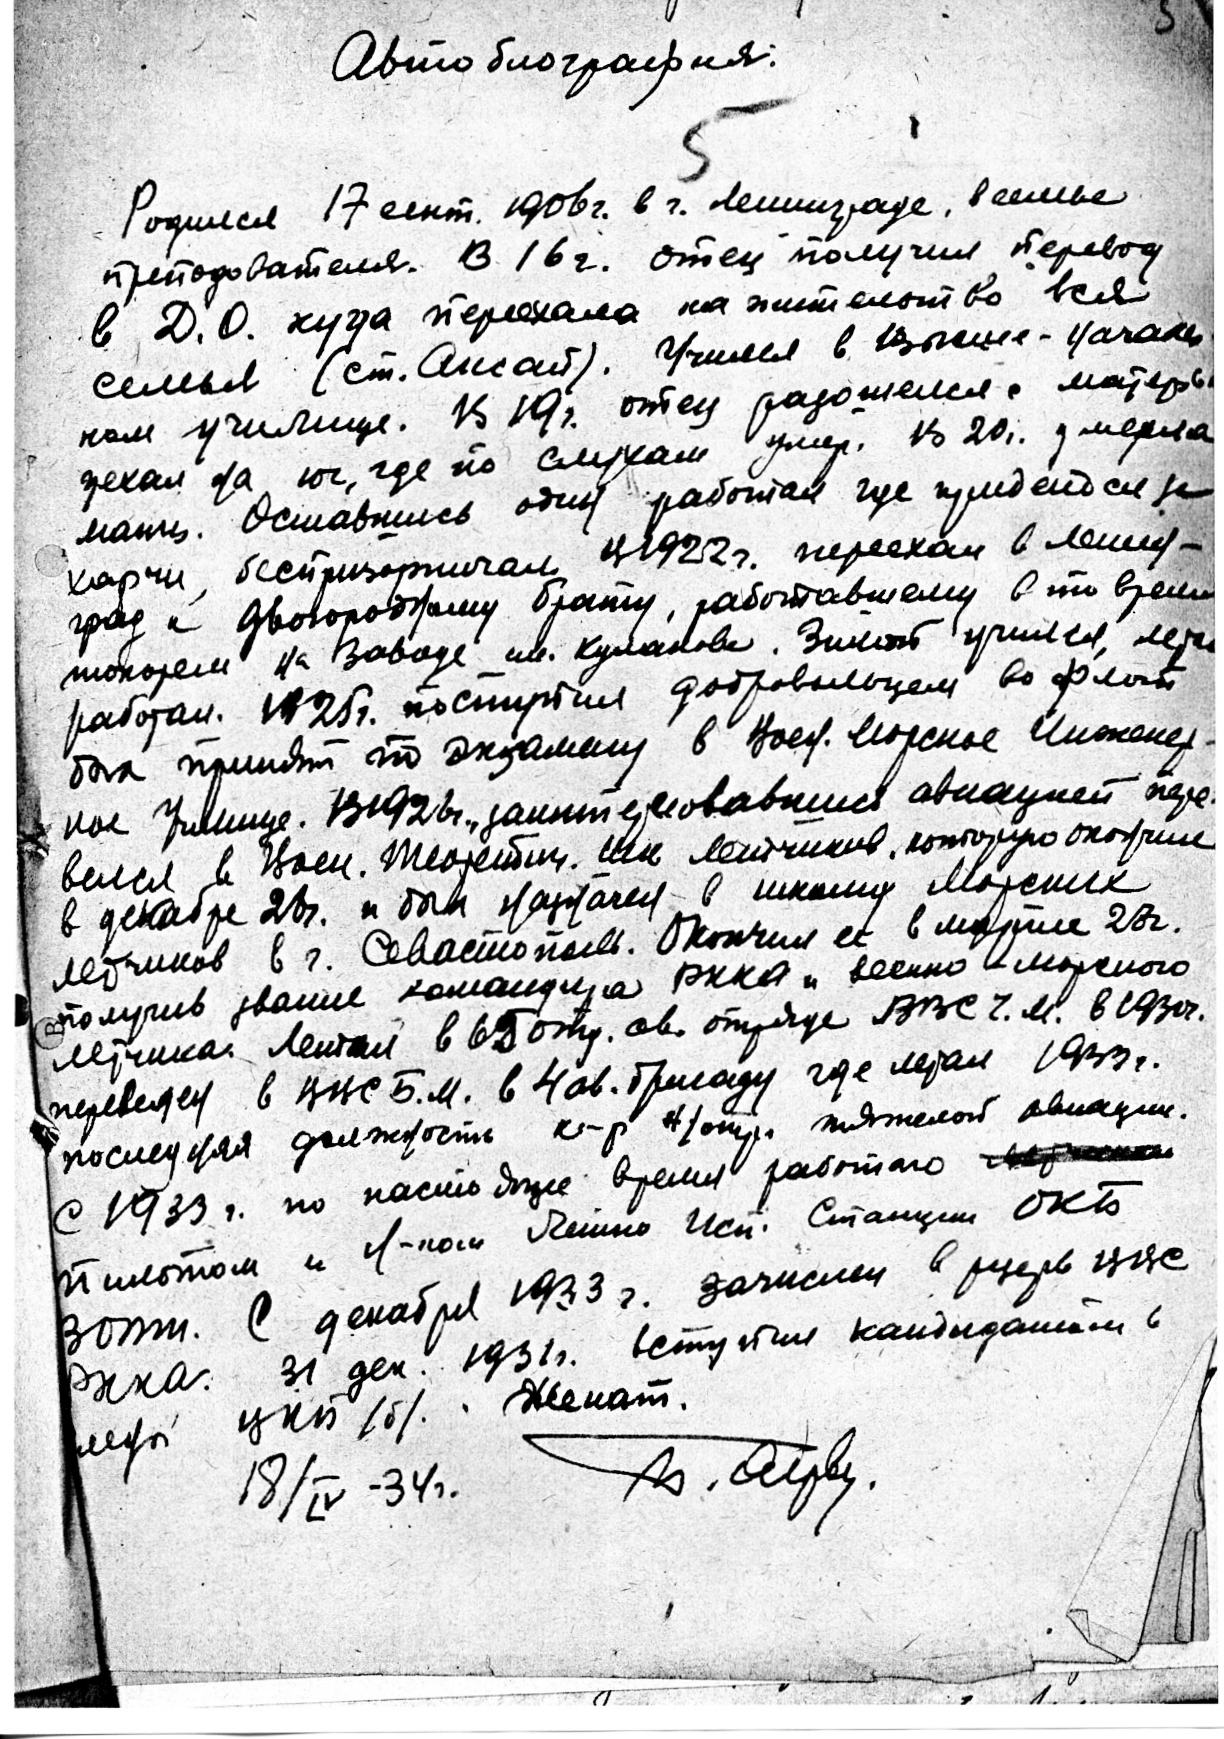 5
Автобиография.
5
Родился 17 сент. 1906г. в г. Ленинграде, в семье
преподователя. В 16г. отец получил перевод
в Д.О. куда переехала на жительство вся
семья (ст. Аксай). Учился в Высше-началь
ном училище. В 19г. отец разошелся с матерью
уехал на юг, где по слухам умер. В 20г. умерла
мать. Оставшись один работал где придется за
харчи, беспризорничал. В 1922г. переехал в Ленин-
град к двоюродному брату, работавшему в то время
токарем на заводе им. Кулакова. Зимой учился, летом
работал. 1925г. поступил добровольцем во флот
был принят по экзамену в Воен. Морское Инженер-
ное Училище. В 1926г., заинтересовавшись авиацией пере-
велся в Воен. Теоретич. шк летчиков, которую окончил
в декабре 26г. и был назначен в школу Морских
летчиков в г. Севастополь. Окончил ее в марте 28г.
получив звание командира РККА и военно-морского
летчика. Летал в 65 отд. ав. отряде ВВС Ч.М. в 1930г.
переведен в ВВС Б.М. в 4 ав. бригаду где летал 1933г.
последняя должность к-р отр. тяжелой авиации.
С 1933г. по настоящее время работаю
пилотом и н-ком Летно Исп. Станции ОКБ
С декабря 1933г. зачислен в резерв ВВС
РККА. 31 дек. 1931г. вступил кандидатом в
члены ВКП/б/. Женат.
18/IV -34г.